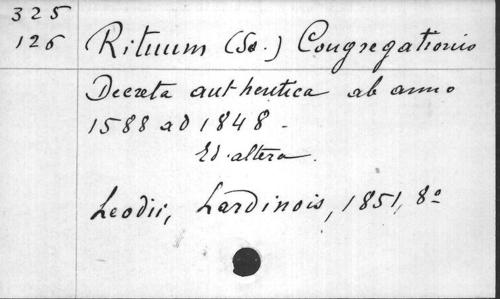 325
126
Rituum (So.) Congregationis
Decreta authentica ab anno
1588 ad 1848.
Ed. altera.
Leodii, Lardinois, 1851, 8º